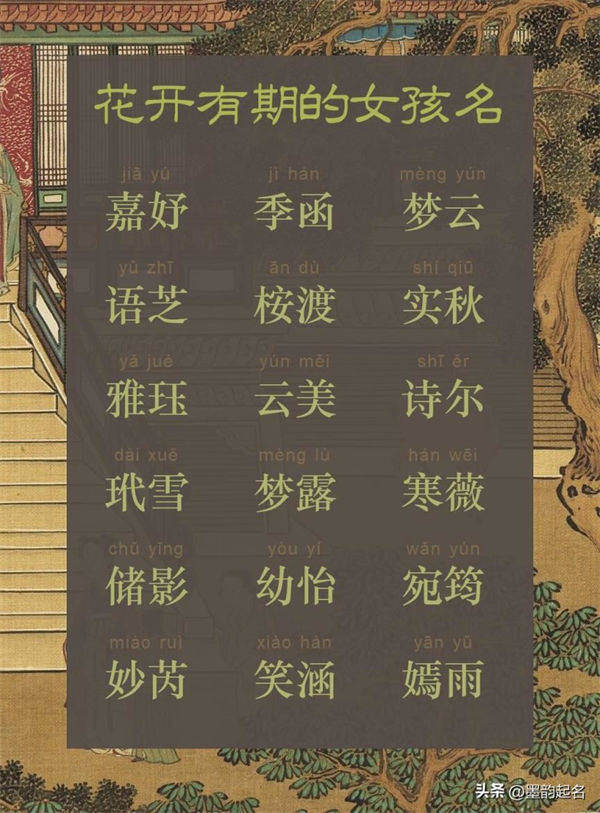 花开有期的女孩名
jiā yú jì hán mèng yún
嘉妤 季函 梦云
yǔ zhī ān dù shí qiū
语芝 桉渡 实秋
yǎ jué yún měi shī ěr
雅珏 云美 诗尔
dài xuě mèng lù hán wēi
玳雪 梦露 寒薇
chǔ yǐng yòu yí wǎn yún
储影 幼怡 宛筠
miào ruì xiào hán yān yǔ
妙芮 笑涵 嫣雨
头条 @墨韵起名